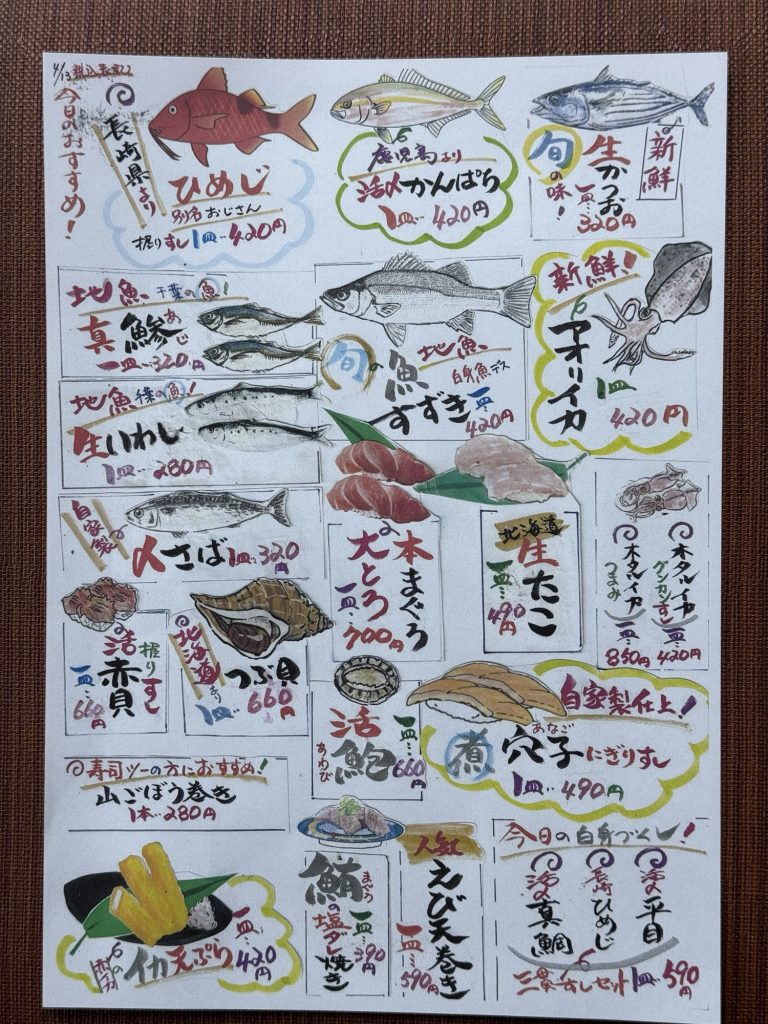 4/13 税込表記
今日のおすすめ！
長崎県より
ひめじ
別名 おじさん
握りすし 1皿… 420円
鹿児島より
活〆かんぱち
1皿… 420円
新鮮
旬の味！
生かつお
一皿… 320円
地魚 千葉の魚！
真鯵
あじ
一皿… 320円
旬の魚
地魚
白身魚デス
すずき
一皿… 420円
新鮮！
アオリイカ
一皿 420円
地魚 千葉の魚！
生いわし
1皿… 280円
自家製
〆さば 1皿… 320円
本まぐろ
大とろ
一皿… 700円
北海道
生たこ
一皿… 490円
ホタルイカ
グンカンすし
一皿… 420円
ホタルイカ
つまみ
一皿… 850円
握りすし
活赤貝
一皿… 660円
北海道より
つぶ貝
1皿… 660円
活鮑
あわび
一皿… 660円
自家製仕上！
煮穴子にぎりすし
あなご
1皿… 490円
寿司ツーの方におすすめ！
山ごぼう巻き
1本… 280円
イカ天ぷら
一皿… 420円
鮪の塩タレ焼き
まぐろ
一皿… 390円
人気
えび天巻き
一皿… 590円
今日の白身づくし！
活〆平目
長崎ひめじ
活〆真鯛
三貫すしセット 1皿… 590円